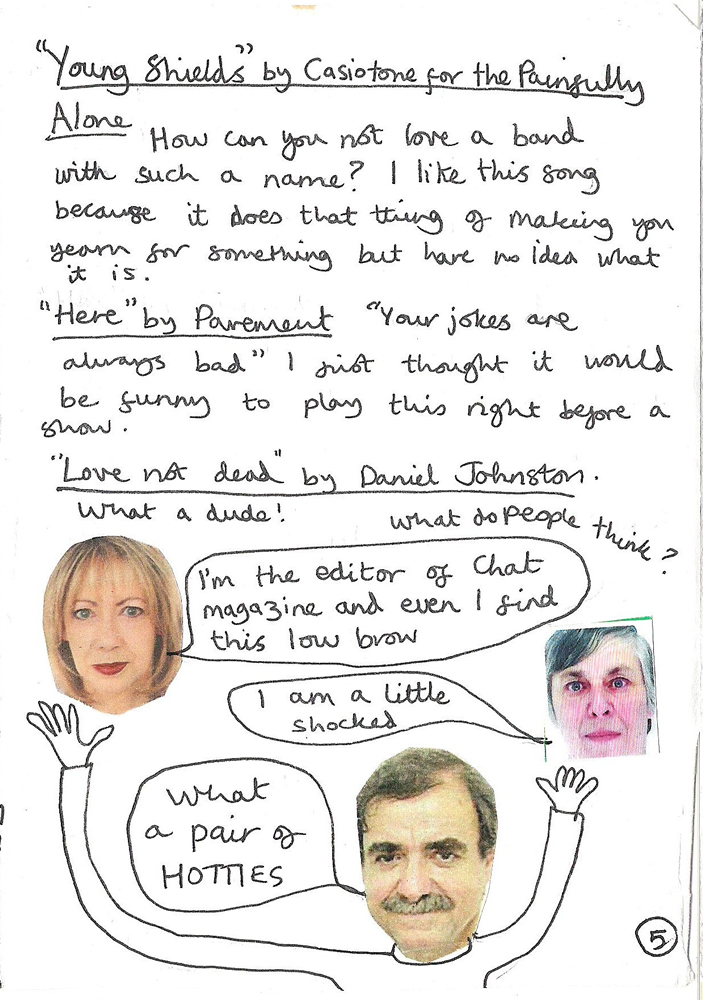 "Young Shields" by Casiotone for the Painfully
Alone How can you not love a band
with such a name? I like this song
because it does that thing of making you
yearn for something but have no idea what
it is.
"Here" by Pavement "Your jokes are
always bad" I just thought it would
be funny to play this right before a
show.
"Love not dead" by Daniel Johnston.
What a dude!
What do people think?
I'm the editor of Chat
magazine and even I find
this low brow
I am a little
shocked
What
a pair of
HOTTIES
5